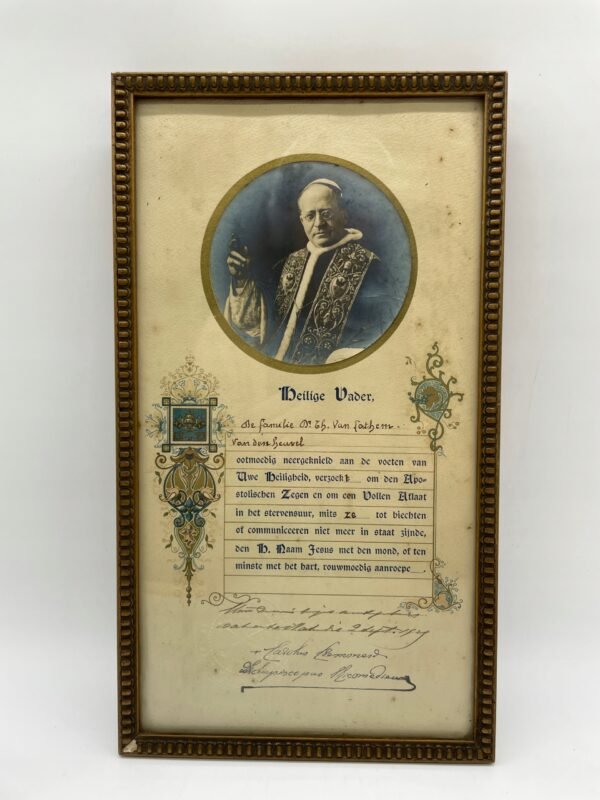 Heilige Vader,
De familie Dr Th. Van Lathem-
Van den heuvel
ootmoedig neergeknield aan de voeten van
Uwe Heiligheid, verzoekt om den Apo-
stolischen Zegen en om een Vollen Aflaat
in het stervensuur, mits ze tot biechten
of communiceeren niet meer in staat zijnde,
den H. Naam Jesus met den mond, of ten
minste met het hart, rouwmoedig aanroepe .
die 2 Sept.
+ Carolus